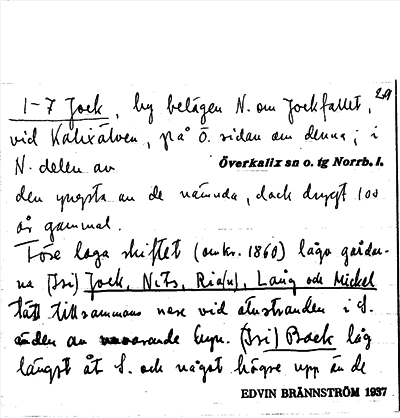 29
1-7 Jock, by belägen N. om Jockfallet,
vid Kalixälven, på Ö. sidan om denna; i
N. delen av Överkalix sn o. tg Norrb. l.
den yngsta av de nämnda, dock drygt 100
år gammal.
Före laga skiftet (omkr. 1860) lågo gårdar-
na (Tri) Jock, Nits, Ria(n), Lång och Mickel
tätt tillsammans nere vid älvstranden i S.
änden av nuvarande byn. (Tri) Back låg
längst åt S. och något högre upp än de
EDVIN BRÄNNSTRÖM 1937